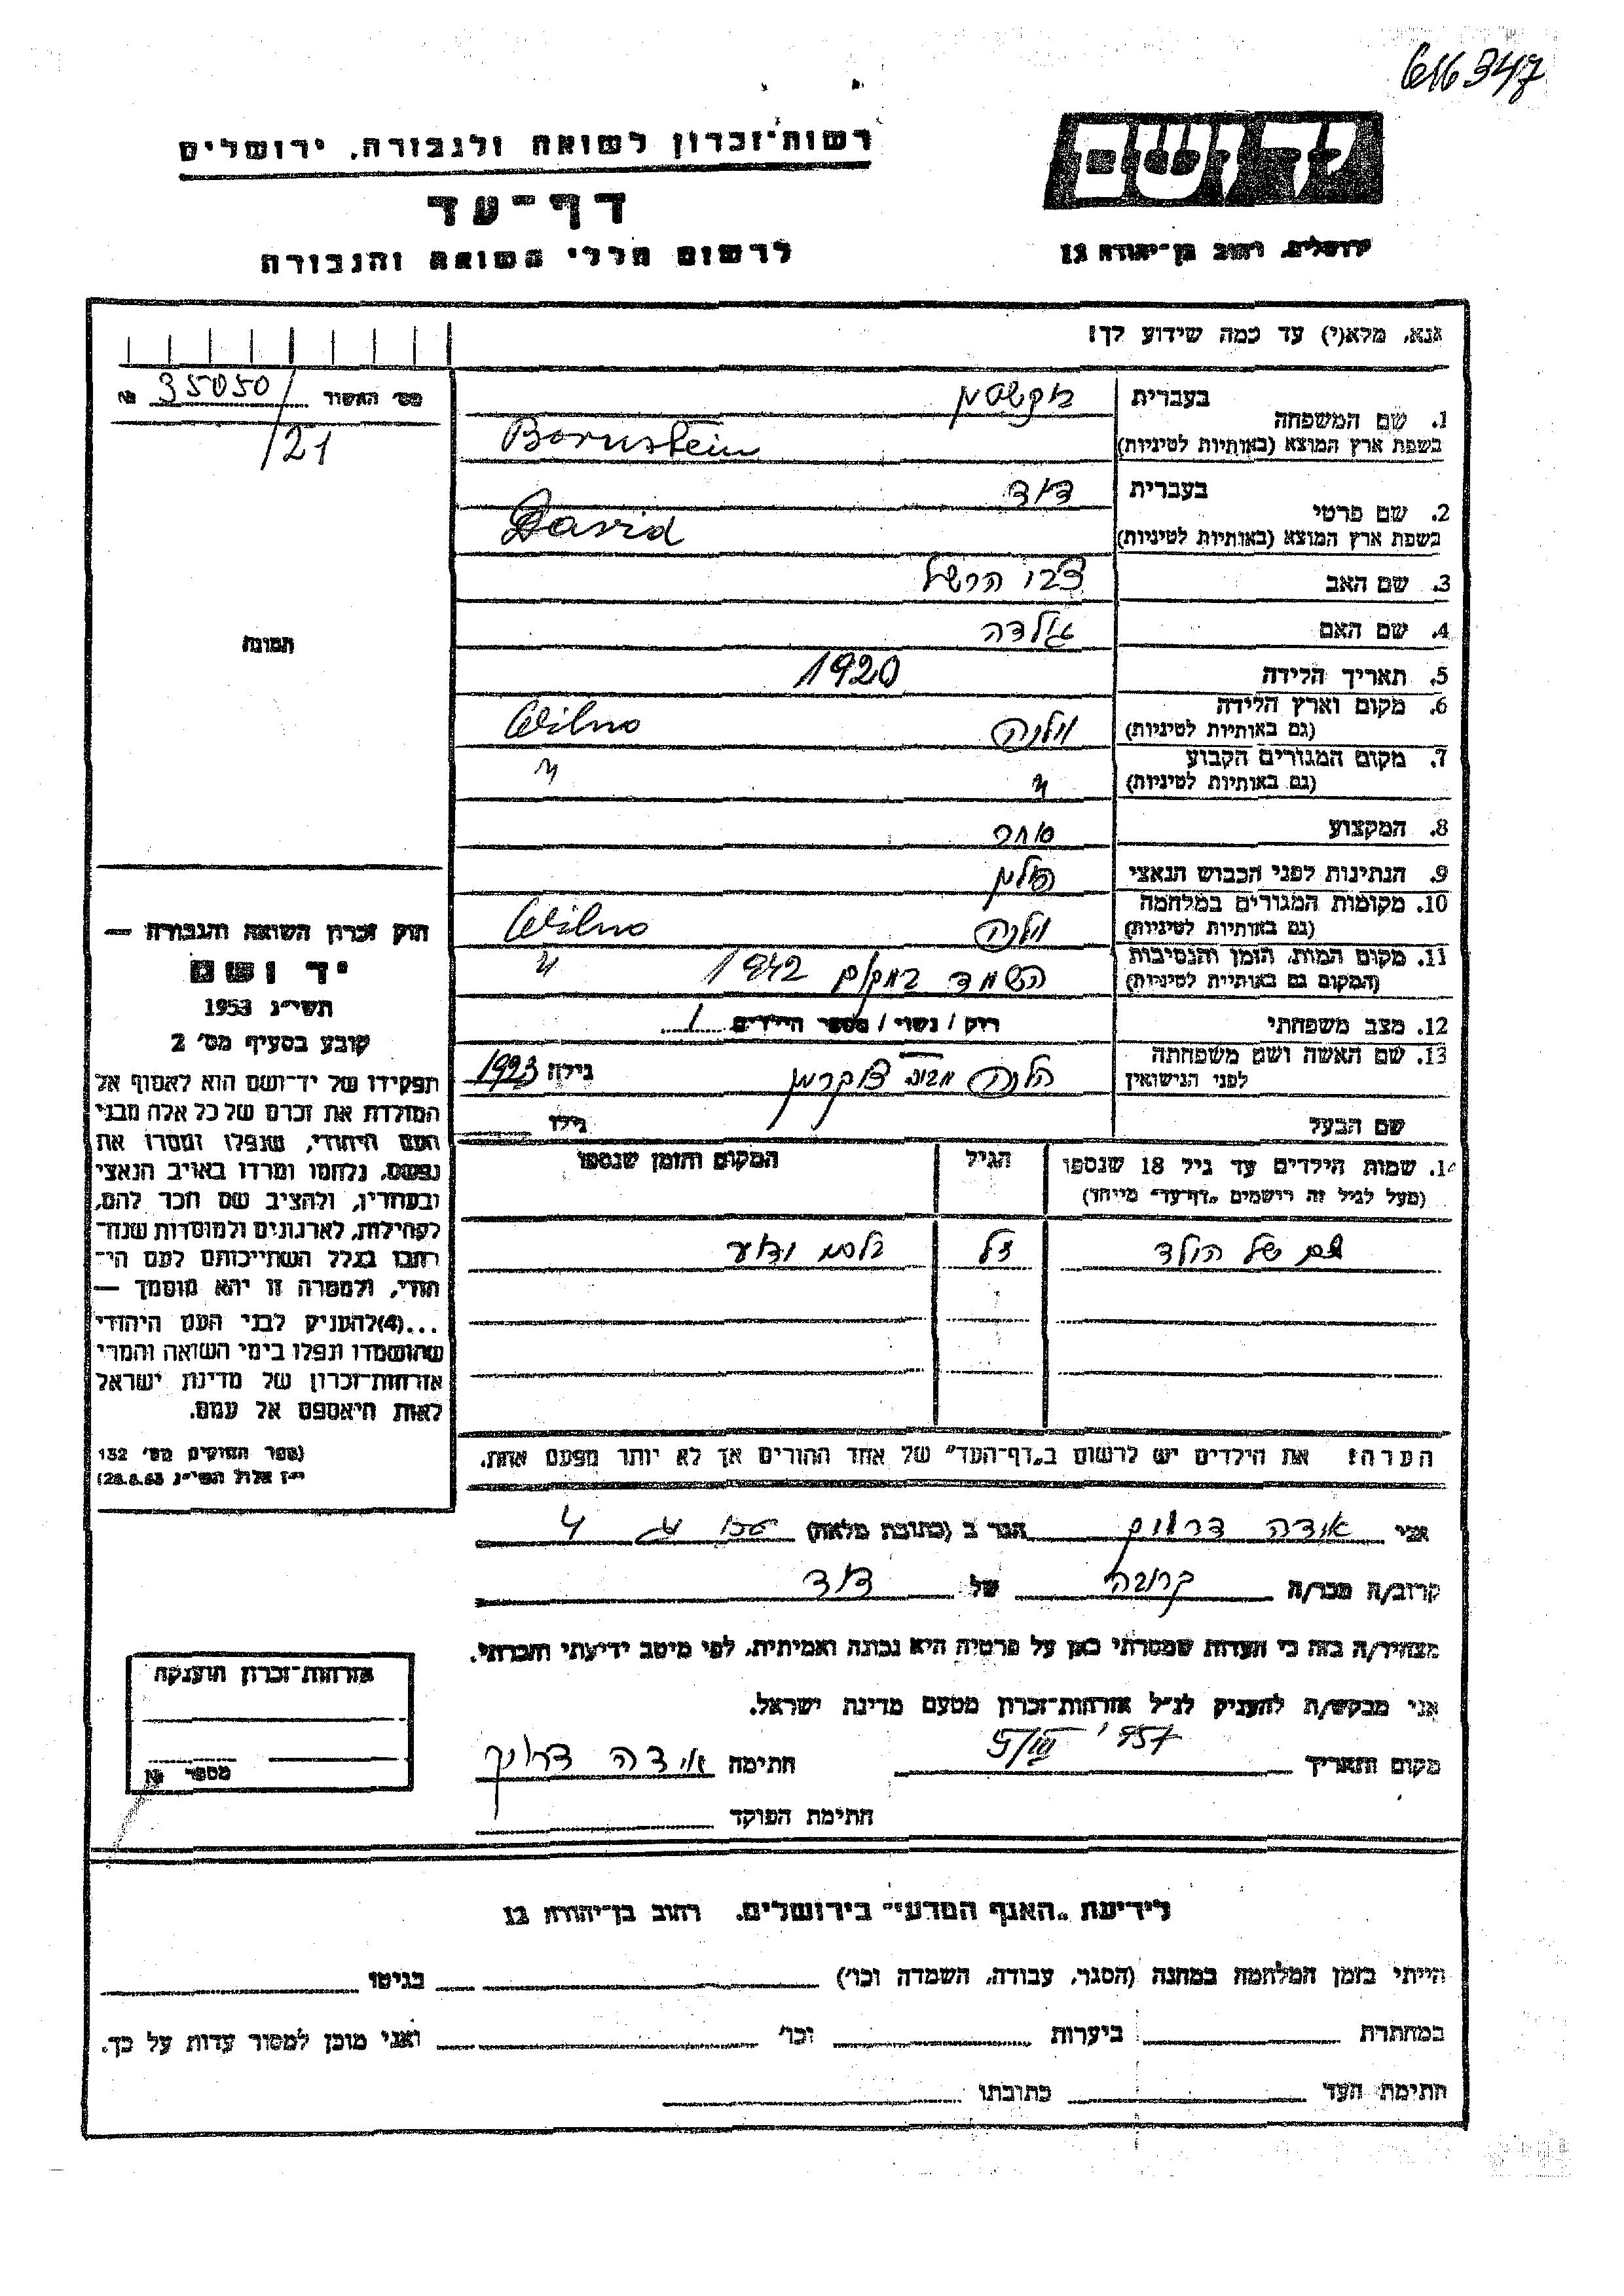 616347
רשות־זכרון לשואה ולגבורה, ירושלים
יד ושם
דף־עד
לרשום חללי השואה והגבורה
ירושלים, רחוב בן־יהודה 12
אנא, מלא(י) עד כמה שידוע לך!
מס׳ האשור 35050/ №
/21
1. שם המשפחה
בעברית
בשפת ארץ המוצא (באותיות לטיניות) Bornstein
2. שם פרטי
בעברית דוד
בשפת ארץ המוצא (באותיות לטיניות) David
3. שם האב צבי הרשל
4. שם האם גולדה
תמונה
5. תאריך הלידה 1920
6. מקום וארץ הלידה
(גם באותיות לטיניות) וילנה Wilno
7. מקום המגורים הקבוע
(גם באותיות לטיניות) " "
8. המקצוע סוחר
9. הנתינות לפני הכבוש הנאצי פולין
10. מקומות המגורים במלחמה
(גם באותיות לטיניות) וילנה Wilno
11. מקום המות, הזמן והנסיבות
(המקום גם באותיות לטיניות) הושמד במקום 1942 "
12. מצב משפחתי רוק / נשוי / מספר הילדים 1
13. שם האשה ושם משפחתה
לפני הנישואין הלנה מבית צוקרמן גילה 1923
שם הבעל גילו
14. שמות הילדים עד גיל 18 שנספו
(מעל לגיל זה רושמים „דף־עד״ מיוחד)
הגיל
המקום והזמן שנספו
שם של הולד
בלתי ידוע
הערה: את הילדים יש לרשום ב„דף־העד״ של אחד ההורים אך לא יותר מפעם אחת.
חוק זכרון השואה והגבורה —
יד ושם
תשי״ג 1953
קובע בסעיף מס׳ 2
תפקידו של יד־ושם הוא לאסוף אל
המולדת את זכרם של כל אלה מבני
העם היהודי, שנפלו ומסרו את
נפשם, נלחמו ומרדו באויב הנאצי
ובעוזריו, ולהציב שם וזכר להם,
לקהילות, לארגונים ולמוסדות שנח־
רבו בגלל השתייכותם לעם הי־
הודי, ולמטרה זו יהא מוסמך —
...(4)להעניק לבני העם היהודי
שהושמדו ונפלו בימי השואה והמרי
אזרחות־זכרון של מדינת ישראל
לאות היאספם אל עמם.
(ספר החוקים מס׳ 132
י״ז אלול תשי״ג 28.8.53)
אני אידה הגר ב (כתובת מלאה) 4
קרוב/ה מכר/ה קרובה של דוד
מצהיר/ה בזה כי העדות שמסרתי כאן על פרטיה היא נכונה ואמיתית, לפי מיטב ידיעתי והכרתי.
אני מבקש/ת להעניק לנ״ל אזרחות־זכרון מטעם מדינת ישראל.
מקום ותאריך 5/III 957 חתימה אידה
חתימת הפוקד
אזרחות־זכרון הוענקה
מספר №
לידיעת „האגף המדעי״ בירושלים. רחוב בן־יהודה 12
הייתי בזמן המלחמה במחנה (הסגר, עבודה, השמדה וכו׳) בגיטו
במחתרת ביערות וכו׳ ואני מוכן למסור עדות על כך.
חתימת העד כתובתו